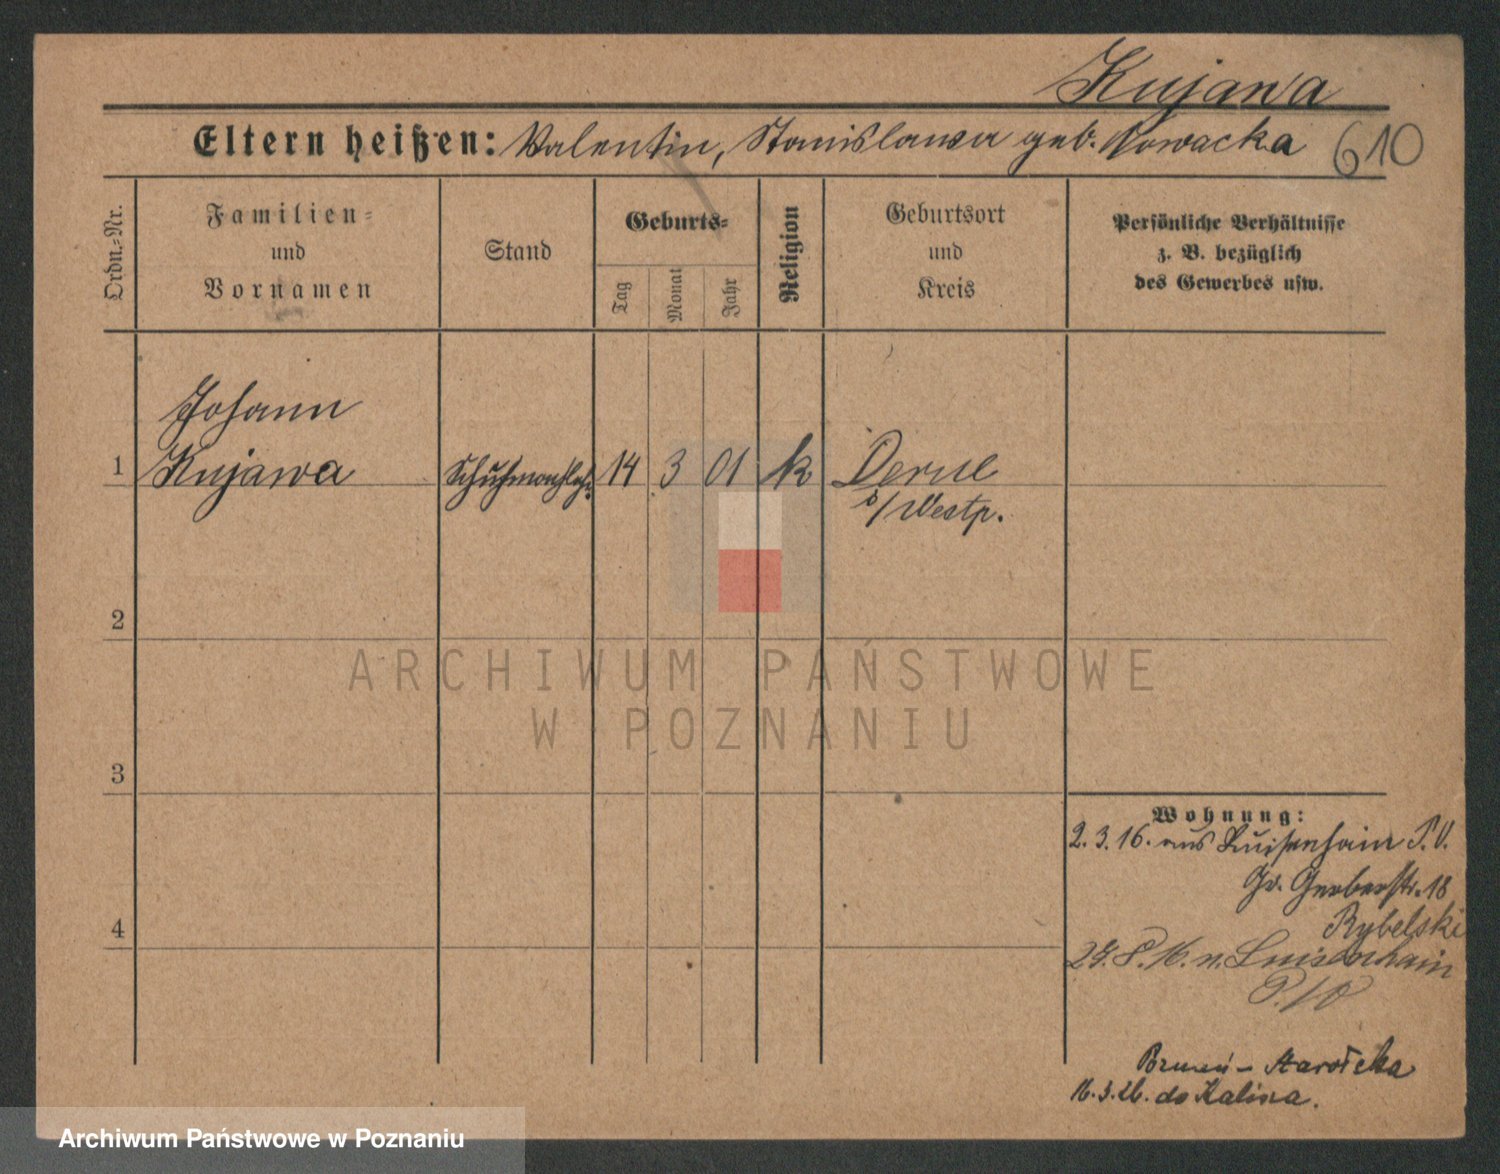 Kujawa
Eltern heißen: Valentin, Stanislawa geb. Nowacka 610
Ordn.-Nr.
Familien-
und
Vornamen
Stand
Geburts-
Tag
Monat
Jahr
Religion
Geburtsort
und
Kreis
Persönliche Verhältnisse
z. B. bezüglich
des Gewerbes usw.
Johann
1 Kujawa Schuhmachlehr. 14 3 01 k
i/Westp.
2
ARCHIWUM PAŃSTWOWE
W POZNANIU
3
Wohnung:
2.3.16. aus Luisenhain P.O.
Gr. Gerberstr. 18
4
Rybelski
8.16. n. Luisenhain
P./O
Starołęka
16.3.26. do Kalisza.
Archiwum Państwowe w Poznaniu